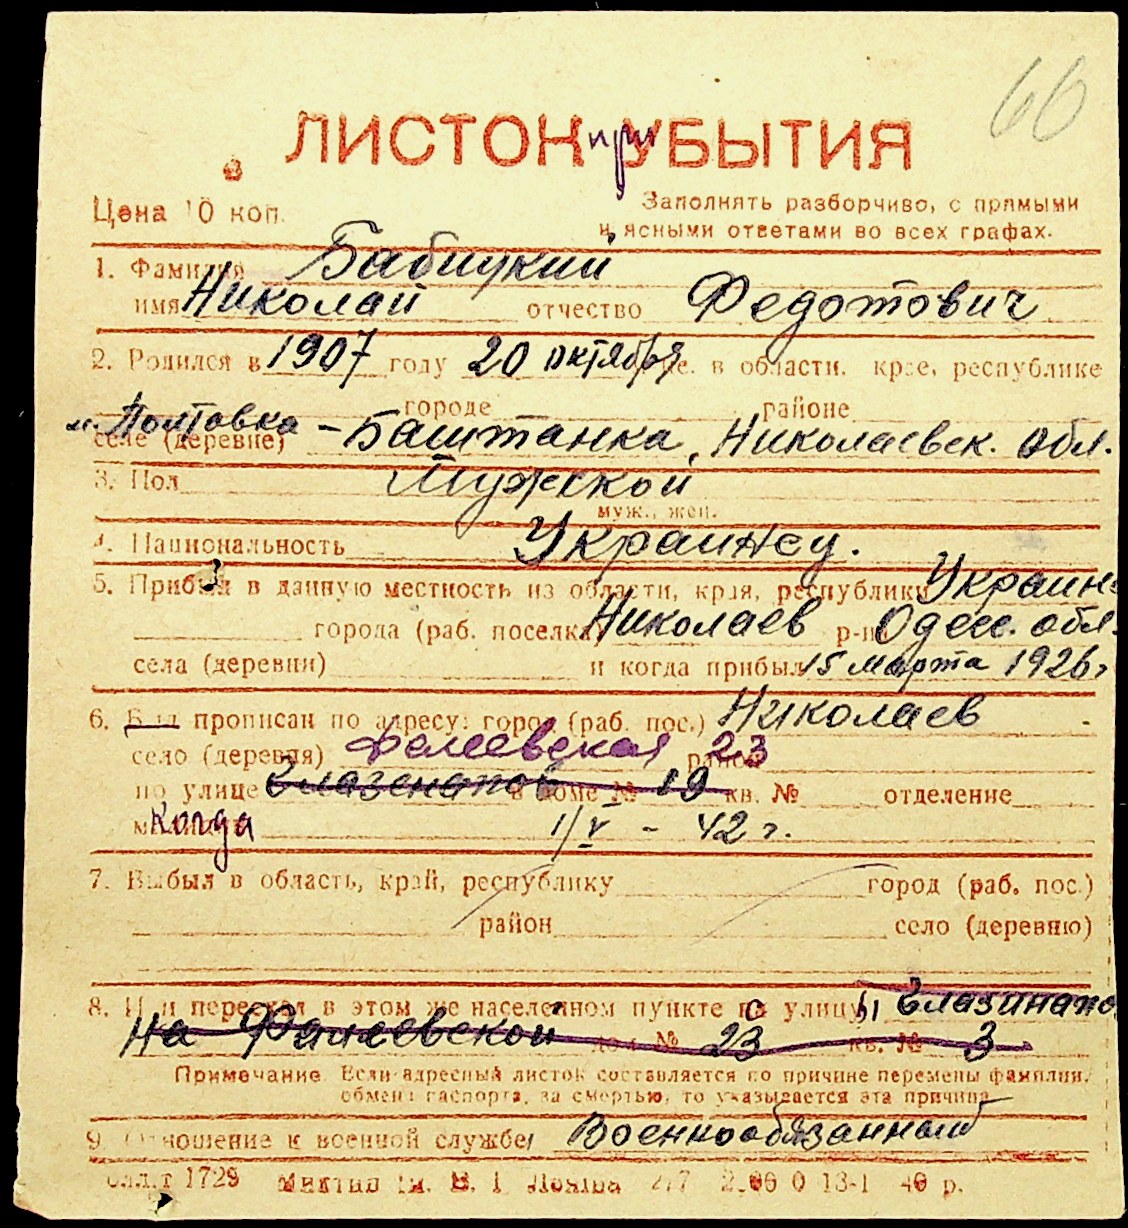 66
ЛИСТОК при УБЫТИЯ
Цена 10 коп.
Заполнять разборчиво, с прямыми
и ясными ответами во всех графах.
1. Фамилия Бабицкий
имя Николай отчество Федотович
2. Родился в 1907 году 20 октября в области, крае, республике
городе районе
м. Полтавка
селе (деревне) – Баштанка, Николаевск. обл.
3. Пол Мужской
муж., жен.
4. Национальность Украинец.
5. Прибыл в данную местность из области, края, республики Украин
города (раб. поселка) Николаев р-на Одесс. обл.
села (деревни) и когда прибыл 15 марта 1926 г
6. Был прописан по адресу: город (раб. пос.) Николаев
село (деревня) Фалеевская район 23
по улице Глазенапов в доме № 19 кв. № отделение
Когда 1/V – 42 г.
7. Выбыл в область, край, республику город (раб. пос.)
район село (деревню)
8. Или переехал в этом же населенном пункте с улицы Глазинапо
На Фалеевской дом № 23 кв. № 3
Примечание. Если адресный листок составляется по причине перемены фамилии,
обмена паспорта, за смертью, то указывается эта причина
9. Отношение к военной службе Военнообязанный
1729 2.00 0 13-1 40 р.